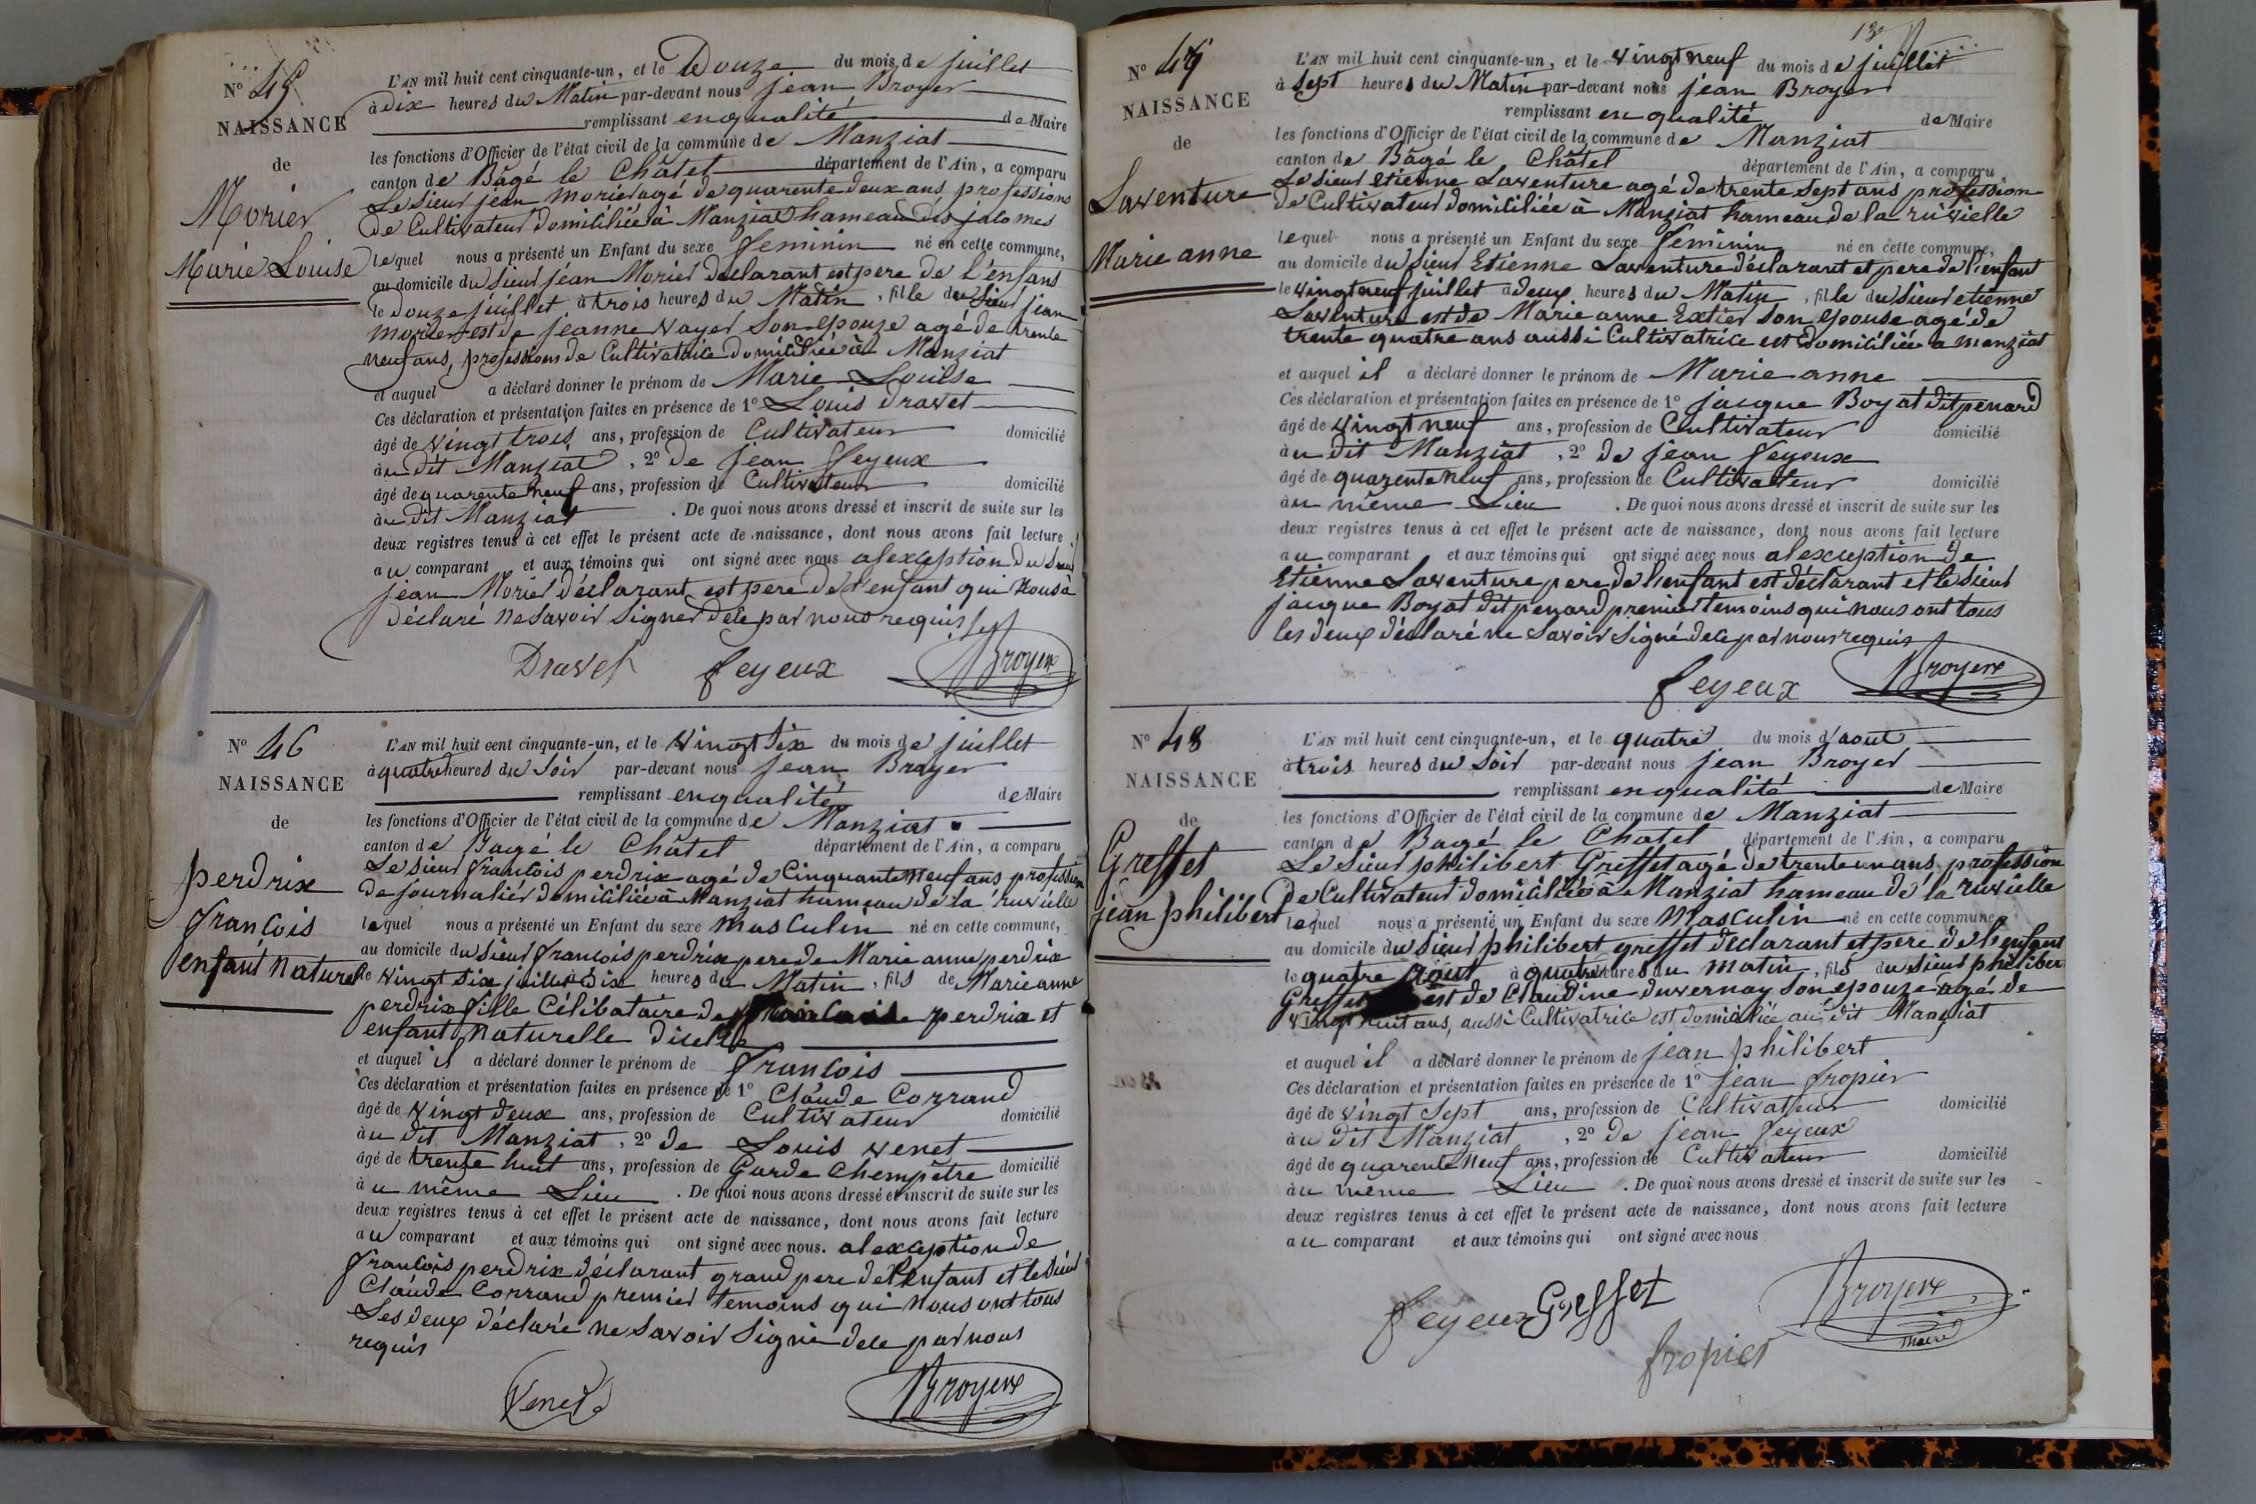 N° 45
NAISSANCE
de
Morier
Marie Louise
L'AN mil huit cent cinquante-un, et le Douze du mois de juillet
à dix heures du Matin par-devant nous jean Broyer
remplissant enqualité de Maire
les fonctions d'Officier de l'état civil de la commune de Manziat
canton de Bâgé le Châtel département de l'Ain, a comparu
Le sieur jean morier agé de quarente deux ans professions
de Cultivateur domiciliée à Manziat hameau des jalomes
lequel nous a présenté un Enfant du sexe feminin né en cette commune,
au domicile du sieur jean Morier déclarant est pere de l'enfans
le douze juillet à trois heures du Matin, fille du sieur jean
morier est de jeanne vayer son epouze agé de trente
neuf ans, professions de Cultivatrice domiciliée à Manziat
et auquel a déclaré donner le prénom de Marie Louise
Ces déclaration et présentation faites en présence de 1° Louis dravet
âgé de vingt trois ans, profession de Cultivateur domicilié
àu dit Manziat, 2° de jean feyeux
âgé de quarente neuf ans, profession de Cultivateur domicilié
àu dit Manziat. De quoi nous avons dressé et inscrit de suite sur les
deux registres tenus à cet effet le présent acte de naissance, dont nous avons fait lecture
au comparant et aux témoins qui ont signé avec nous alexception du sieur
jean Morier déclarant est pere de l'enfant qui nous à
déclaré ne savoir signer dece par nous requis
Dravet feyeux Broyer
N° 46
NAISSANCE
de
perdrix
francois
enfant naturel
L'AN mil huit cent cinquante-un, et le vingt six du mois de juillet
à quatre heures du soir par-devant nous jean Broyer
remplissant enqualité de Maire
les fonctions d'Officier de l'état civil de la commune de Manziat
canton de Bagé le Châtel département de l'Ain, a comparu
Le sieur francois perdrix agé de Cinquante neuf ans profession
de journalier domiciliée à Manziat hameau de la ruvielle
lequel nous a présenté un Enfant du sexe masculin né en cette commune,
au domicile du sieur francois perdrix pere de Marie anne perdrix
le vingt six juillet à dix heures du Matin, fils de Marie anne
perdrix fille Célibataire de perdrix et
enfant naturelle dicelle
et auquel il a déclaré donner le prénom de francois
Ces déclaration et présentation faites en présence de 1° Claude Corrand
âgé de vingt deux ans, profession de Cultivateur domicilié
àu dit Manziat, 2° de Louis venet
âgé de trente huit ans, profession de Garde Chempêtre domicilié
àu même Lieu. De quoi nous avons dressé et inscrit de suite sur les
deux registres tenus à cet effet le présent acte de naissance, dont nous avons fait lecture
au comparant et aux témoins qui ont signé avec nous. alexception de
francois perdrix déclarant grand pere de l'enfant et le sieur
Claude Corrand premier temoins qui nous ont tous
Les deux déclaré ne savoir signé dece par nous
requis
Venet Broyer
13
N° 47
NAISSANCE
de
Laventure
Marie anne
L'AN mil huit cent cinquante-un, et le vingt neuf du mois de juillet
à sept heures du Matin par-devant nous jean Broyer
remplissant en qualité de Maire
les fonctions d'Officier de l'état civil de la commune de Manziat
canton de Bâgé le Châtel département de l'Ain, a comparu
Le sieur etienne Laventure agé de trente sept ans profession
de Cultivateur domiciliée à Manziat hameau de la ruvielle
lequel nous a présenté un Enfant du sexe feminin né en cette commune,
au domicile du sieur Etienne Laventure déclarant et pere de l'enfant
le vingt neuf juillet à deux heures du Matin, fille du sieur etienne
Laventure est de Marie anne Extier son epouse agé de
trente quatre ans aussi Cultivatrice est domiciliée a manziat
et auquel il a déclaré donner le prénom de Marie anne
Ces déclaration et présentation faites en présence de 1° jacque Boyat dit penard
âgé de vingt neuf ans, profession de Cultivateur domicilié
àu dit Manziat, 2° de jean feyeux
âgé de quarente neuf ans, profession de Cultivateur domicilié
àu même Lieu. De quoi nous avons dressé et inscrit de suite sur les
deux registres tenus à cet effet le présent acte de naissance, dont nous avons fait lecture
au comparant et aux témoins qui ont signé avec nous alexception de
Etienne Laventure pere de l'enfant est déclarant et le sieur
jacque Boyat dit penard premier temoins qui nous ont tous
les deux déclaré ne savoir signé dece par nous requis
feyeux Broyer
N° 48
NAISSANCE
de
Greffet
jean philibert
L'AN mil huit cent cinquante-un, et le quatre du mois d'aout
à trois heures du soir par-devant nous jean Broyer
remplissant enqualité de Maire
les fonctions d'Officier de l'état civil de la commune de Manziat
canton de Bagé le Chatel département de l'Ain, a comparu
Le sieur philibert Greffet agé de trente un ans profession
de Cultivateur domiciliée à Manziat hameau de la ruvielle
lequel nous a présenté un Enfant du sexe Masculin né en cette commune,
au domicile du sieur philibert greffet declarant et pere de l'enfant
le quatre aout à quatre heures du matin, fils du sieur philiber
Greffet est de Claudine duvernay son epouze agé de
vingt huit ans, aussi Cultivatrice est domiciliée au dit Manziat
et auquel il a déclaré donner le prénom de jean philibert
Ces déclaration et présentation faites en présence de 1° jean fropier
âgé de vingt sept ans, profession de Cultivateur domicilié
àu dit Manziat, 2° de jean feyeux
âgé de quarente neuf ans, profession de Cultivateur domicilié
àu même Lieu. De quoi nous avons dressé et inscrit de suite sur les
deux registres tenus à cet effet le présent acte de naissance, dont nous avons fait lecture
au comparant et aux témoins qui ont signé avec nous
feyeux Greffet Broyer
fropier maire